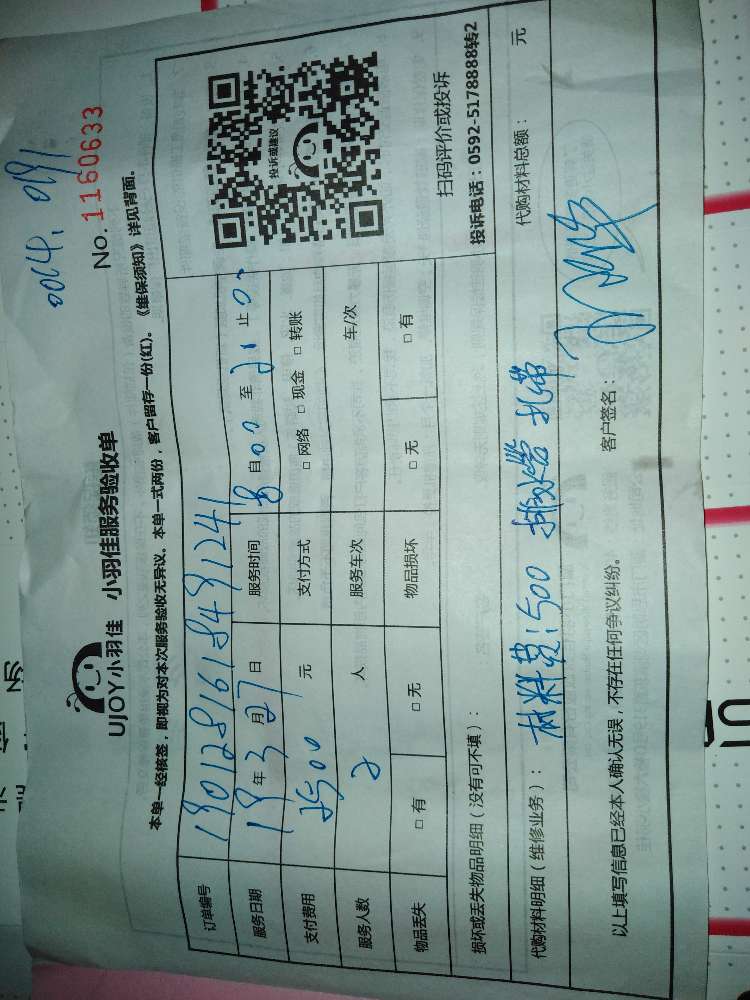 0014, 0191
No. 1160633
UJOY小羽佳 小羽佳服务验收单
本单一经核签，即视为对本次服务验收无异议。本单一式两份，客户留存一份(红)。《维保须知》详见背面。
订单编号 1901281618491241
服务日期 19年3月27日 服务时间 自 00 至 21 止 0
支付费用 元 支付方式 □ 网络 □ 现金 □ 转账
服务人数 2 人 服务车次 车/次
物品丢失 □ 有 □ 无 物品损坏 □ 无 □ 有
投诉或建议
扫码评价或投诉
投诉电话：0592-5178888转2
损坏或丢失物品明细（没有可不填）：
代购材料明细（维修业务）： 材料费：500 扎带 代购材料总额： 元
以上填写信息已经本人确认无误，不存在任何争议纠纷。 客户签名：